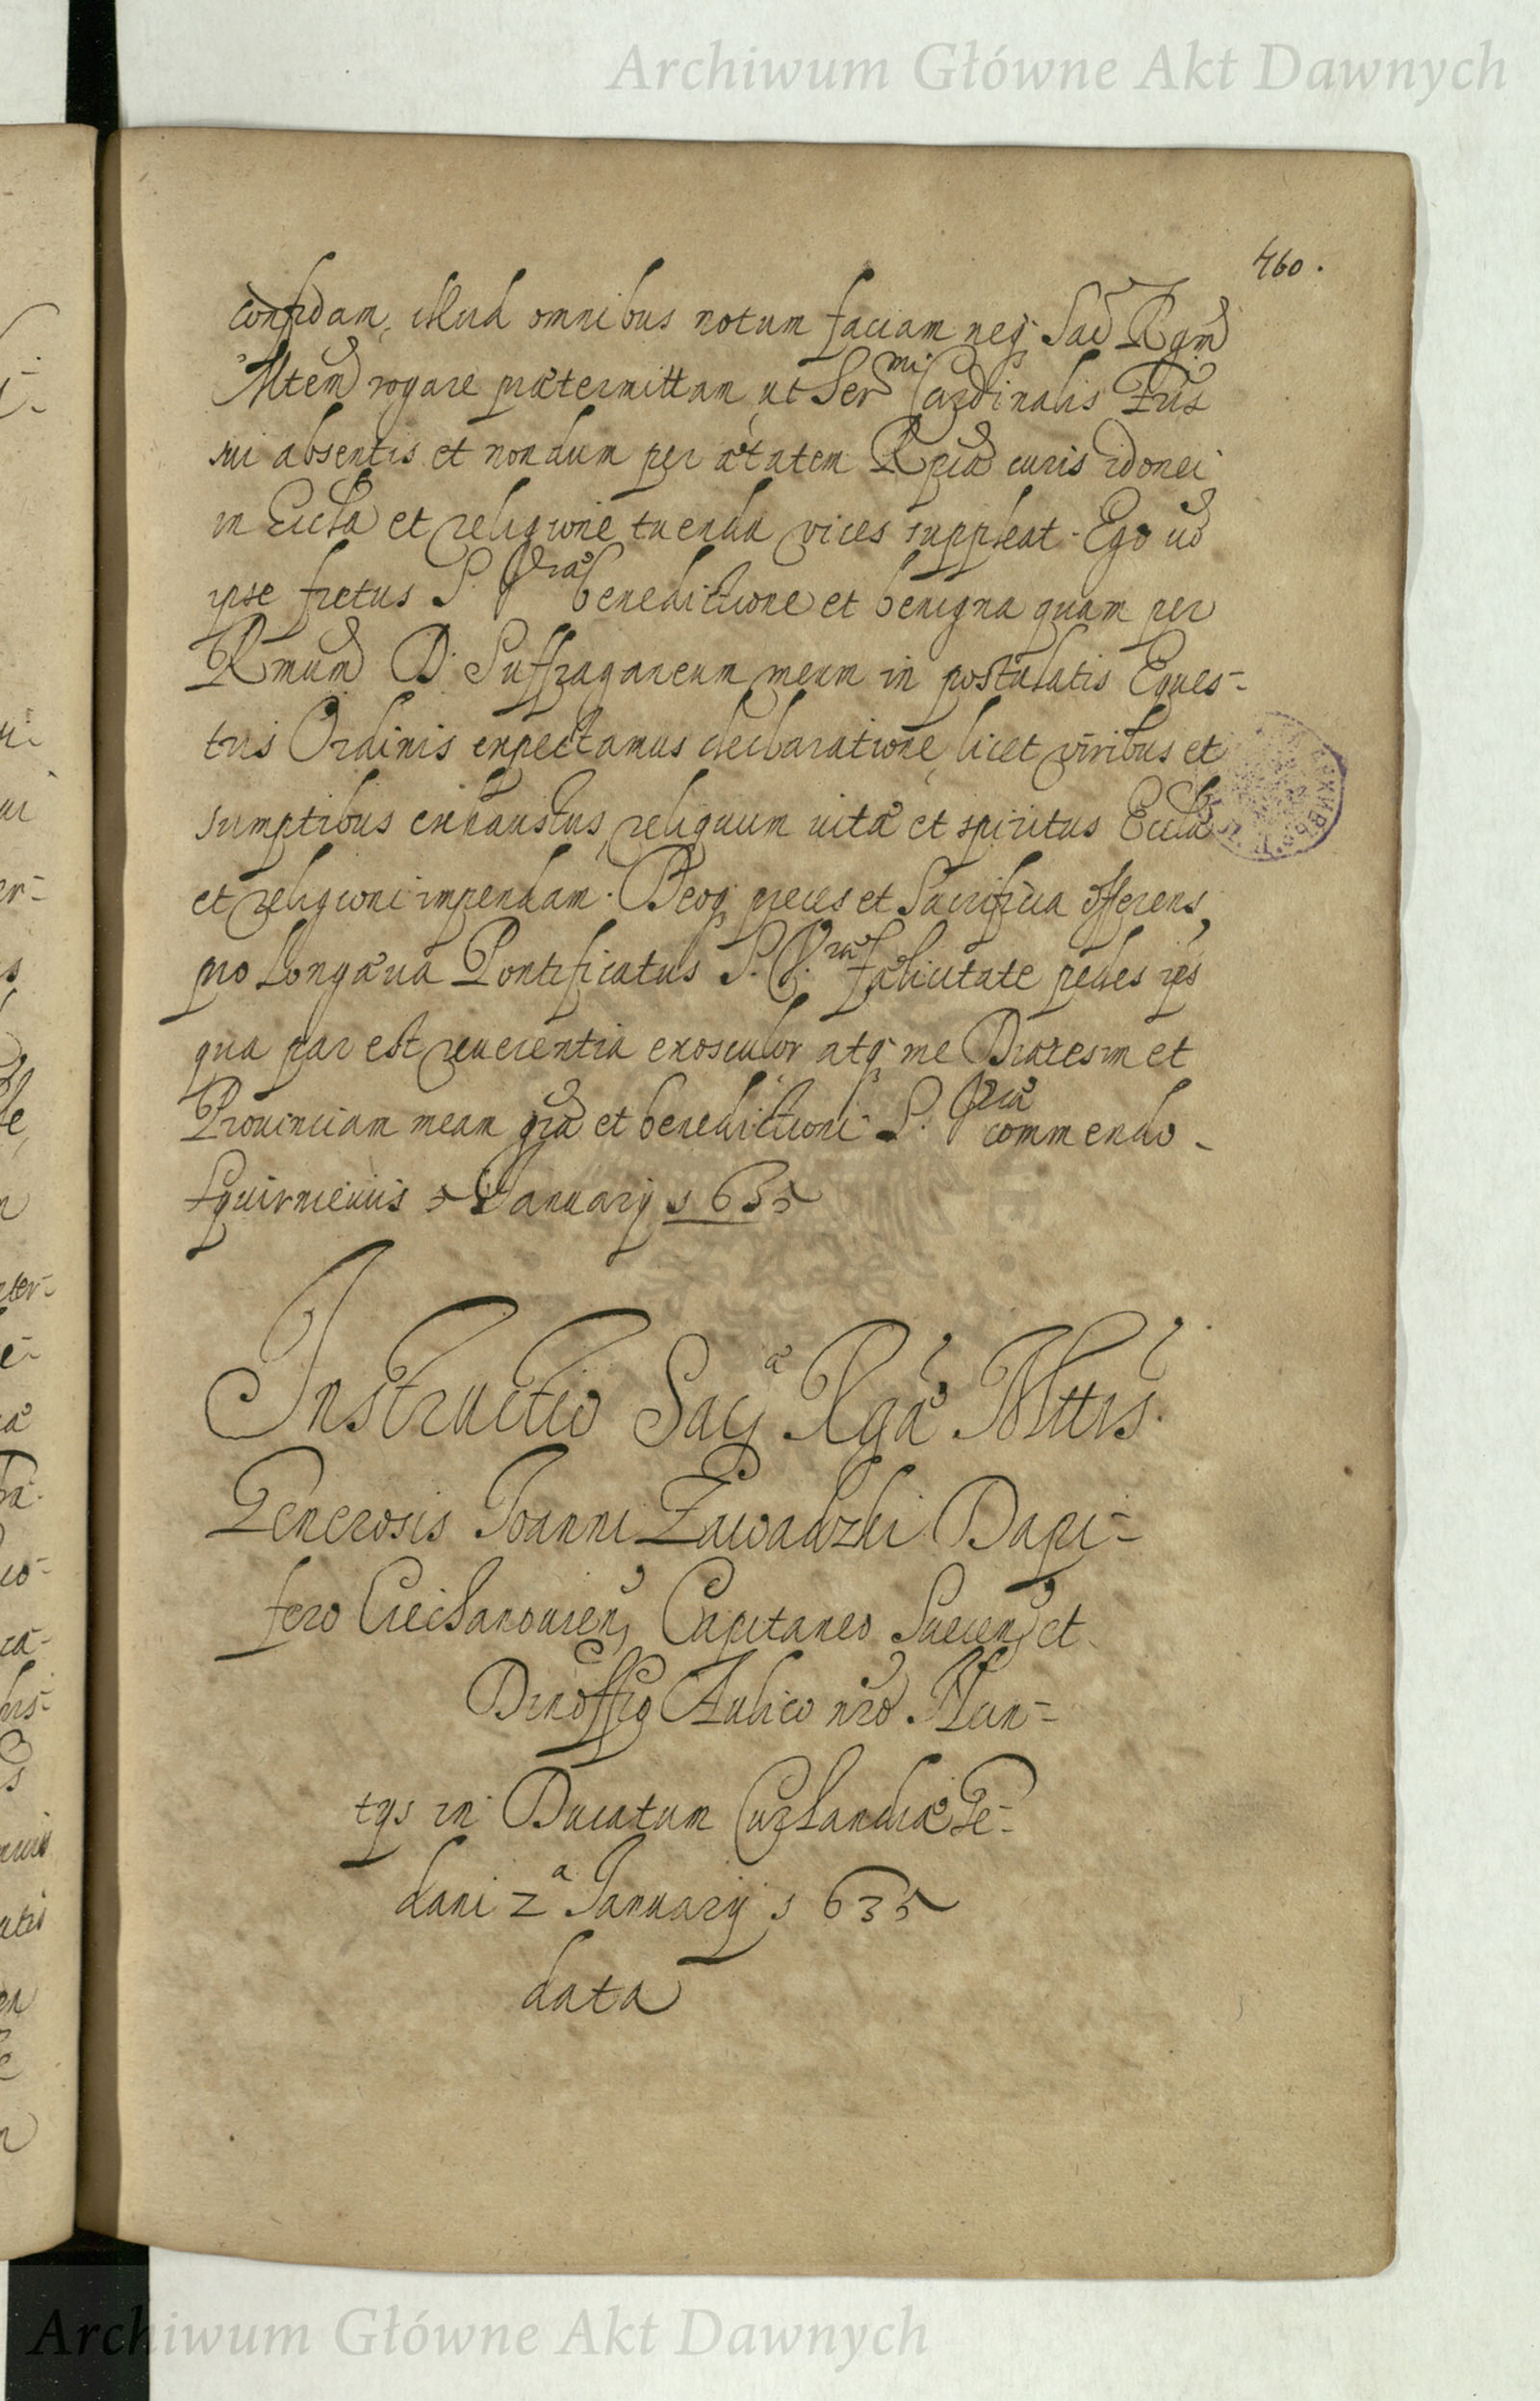 Archiwum Główne Akt Dawnych
460.
confidam, illud omnibus notum faciam neq. Sac Rgm
Mtem rogare prætermittam, ut Sermi Cardinalis Fris
sui absentis et nondum per ætatem Rpcæ curis idonei
in Eccla et religione tuenda vices suppleat. Ego vo
ipse fretus S. Vræ benedictione et benigna quam per
Rmum D. Suffraganeum meum in postulatis Eques-
tris Ordinis expectamus declaratione, licet viribus et
sumptibus exhaustus, reliquum vitæ et spiritus Ecclæ
et religioni impendam. Deoq preces et Sacrificia offerens,
pro Longæva Pontificatus S. V.ræ fælicitate pedes
qua par est reverentia exosculor atq. me Diæcesim et
Provinciam meam græ et benedictioni S. Vræ commendo.
Squirneviis 5 Januarij 1635
Instructio Sacæ Rgæ Mttis.
Generosis Joanni Zawadzki Dapi-
fero Ciechanovien, Capitaneo Suecen, et
Aulico nro Nun-
tys in Ducatum Curlandiæ Ge-
dani 2a Januarij 1635
data
Archiwum Główne Akt Dawnych